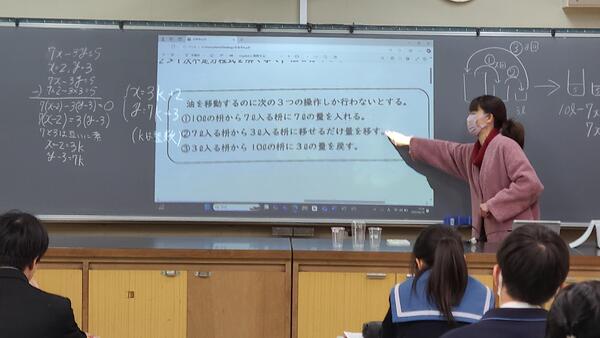 7x-3y=5
x=2, y=3
7x-3y=5
-) 7×2-3×3=5
7(x-2)-3(y-3)=0
7(x-2)=3(y-3)
7と3は互いに素
x-2=3k
y-3=7k
x=3k+2
y=7k-3
(kは整数)
油を移動するのに次の3つの操作しか行わないとする。
①10ℓの枡から7ℓ入る枡に7ℓの量を入れる。
②7ℓ入る枡から3ℓ入る枡に移せるだけ量を移す。
③3ℓ入る枡から10ℓの枡に3ℓの量を戻す。
③
②
①
3ℓ
10ℓ-7